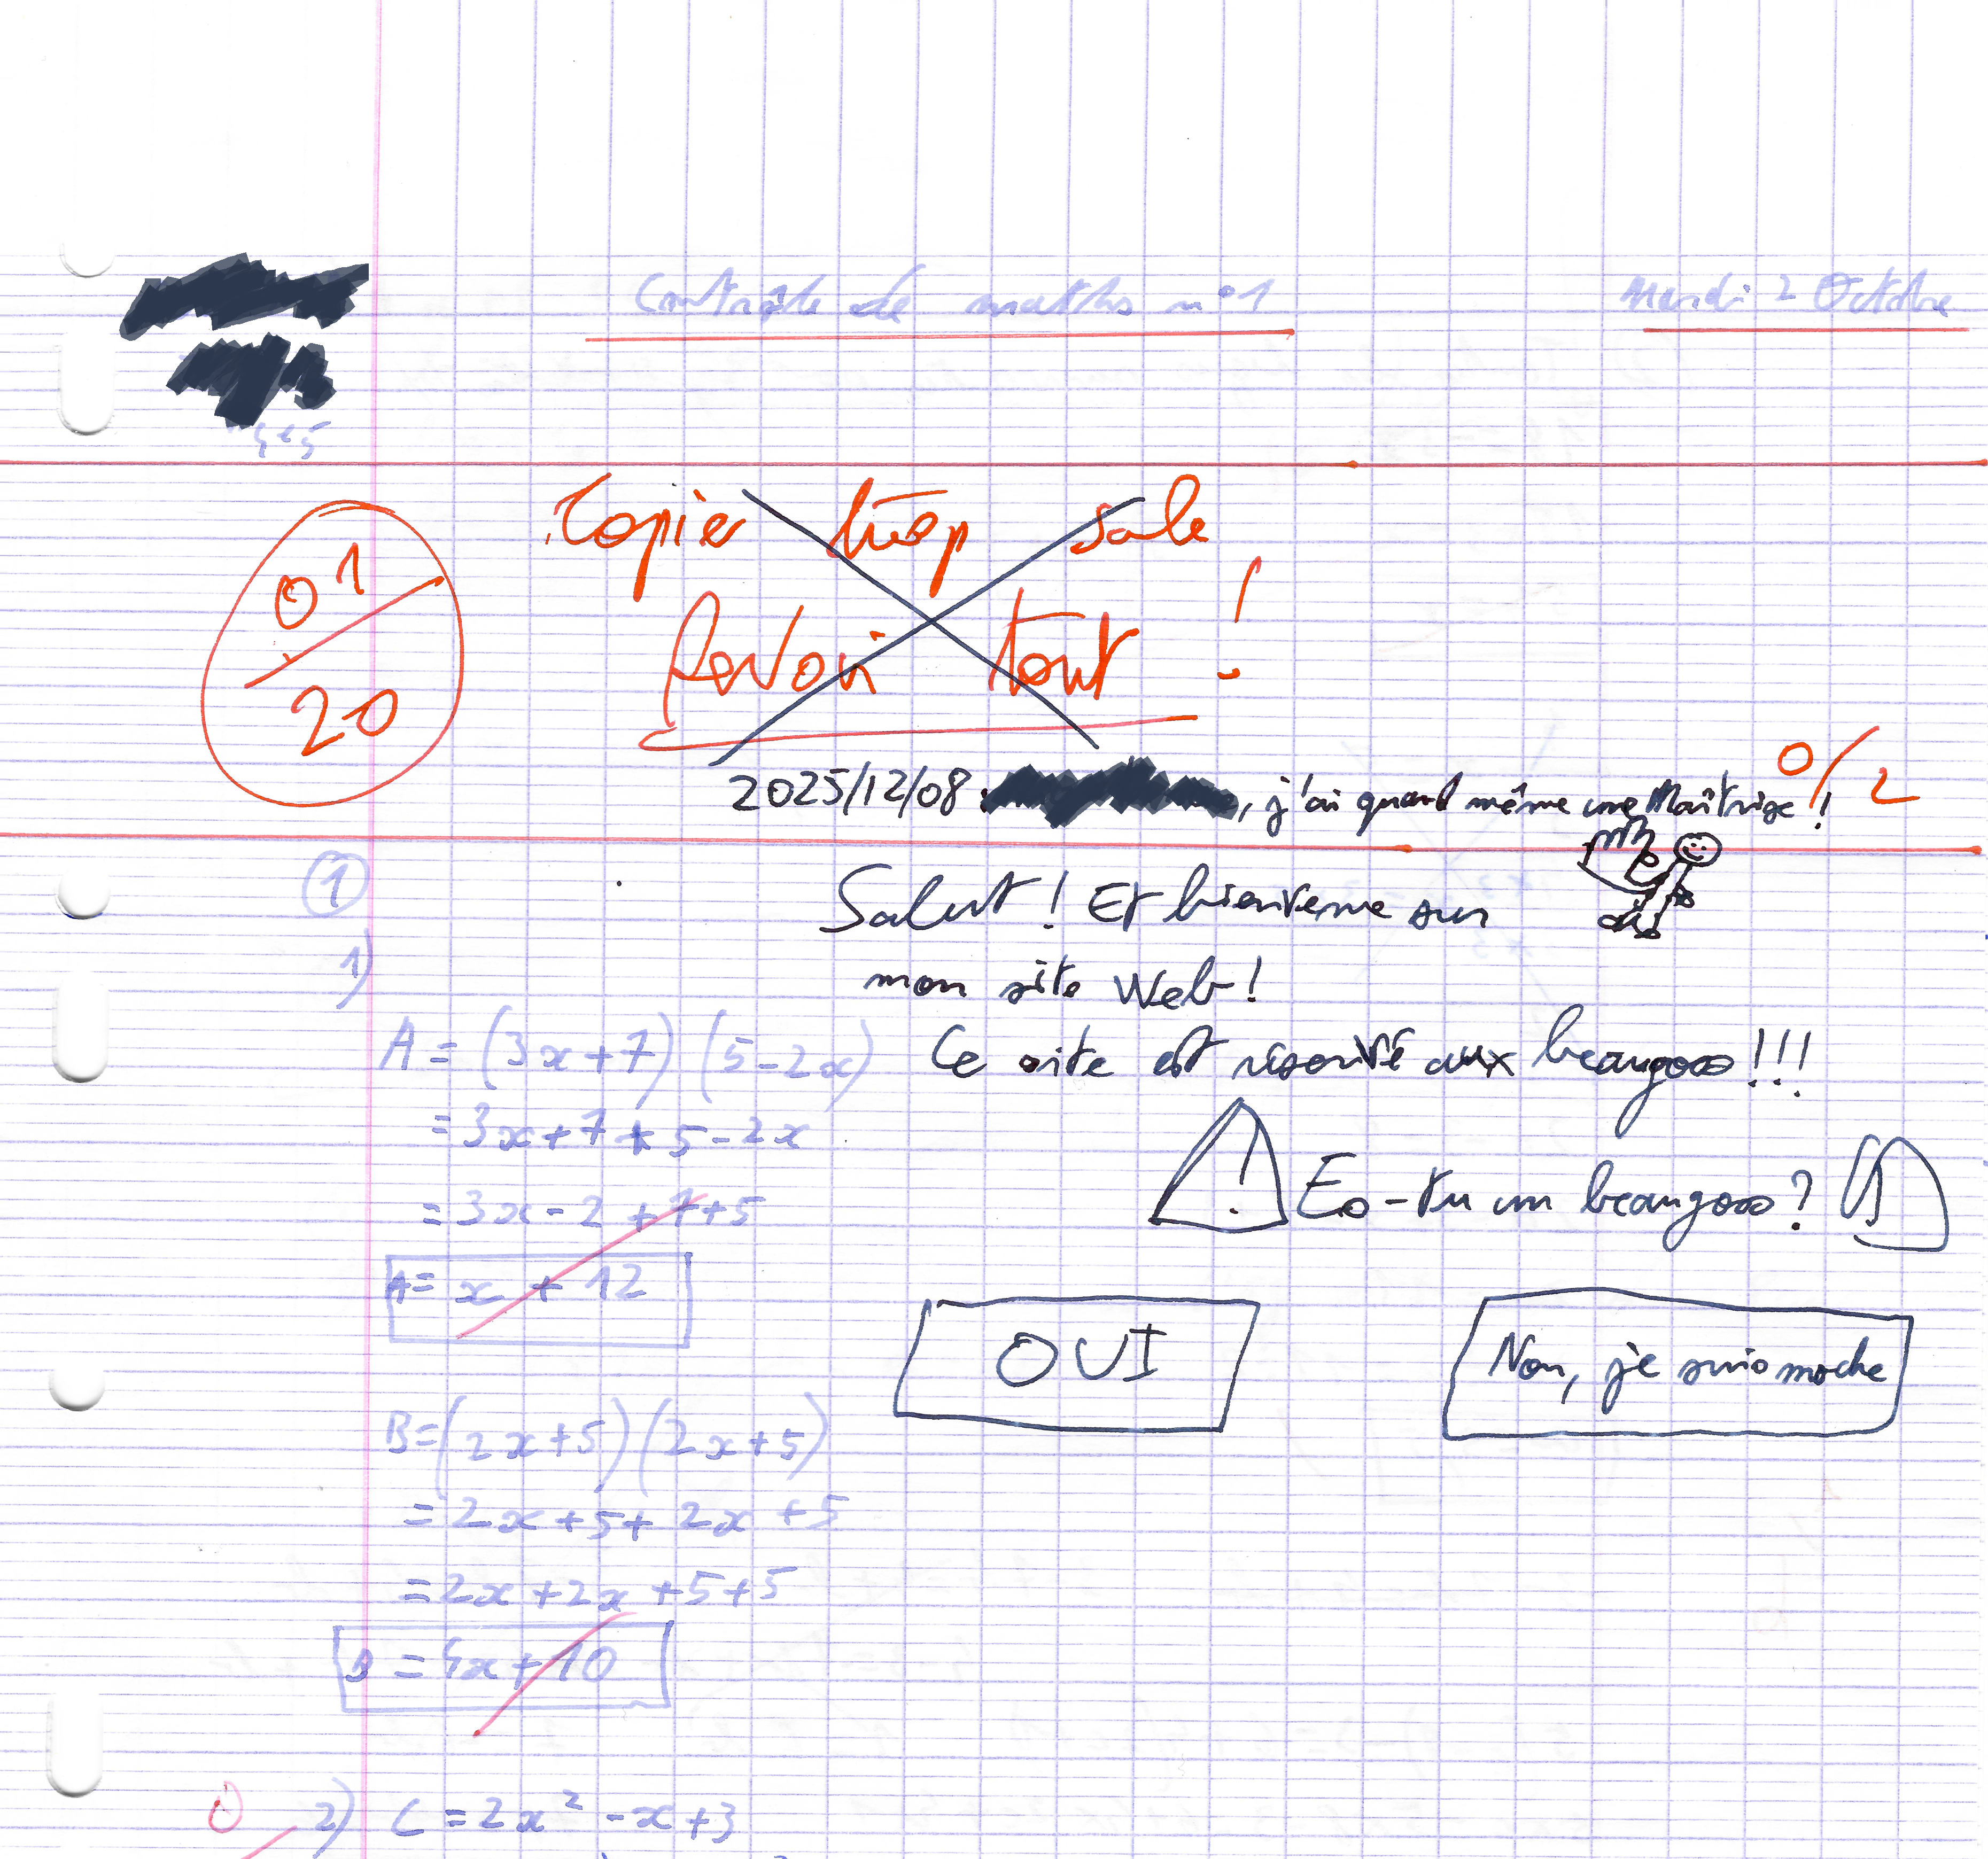 Contrôle de maths n°1
Mardi 2 Octobre
4e5
01/20
Copier trop sale
Revoir tout !
0/2
2025/12/08 , j'ai quand même une Maîtrise !
①
Salut ! Et bienvenue sur
mon site Web !
1)
A = (3x+7)(5-2x)
Ce site est réservé aux beaugoss !!!
= 3x+7+5-2x
! Es-tu un beaugoss ?
= 3x-2+7+5
A = x + 12
OUI
Non, je suis moche
B=(2x+5)(2x+5)
= 2x+5+2x+5
= 2x+2x+5+5
B = 4x+10
0
2) C = 2x² - x + 3